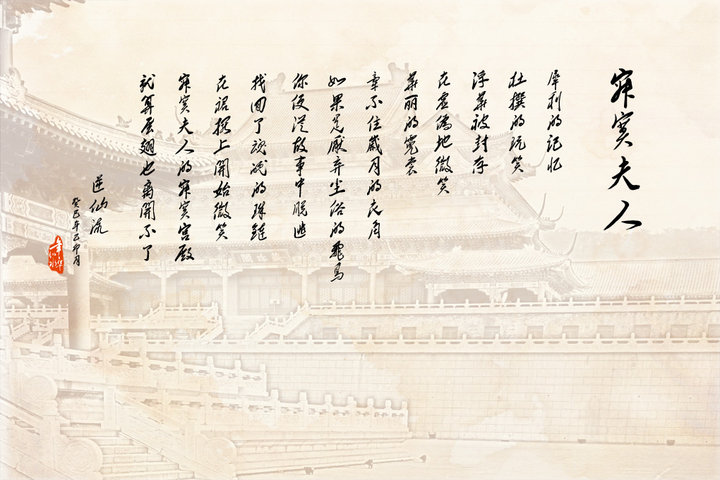 寂寞夫人
犀利的记忆
杜撰的玩笑
浮华被封存
在虚伪地微笑
华丽的霓裳
牵不住岁月的衣角
如果是厌弃尘俗的飞鸟
你便从故事中脱逃
找回了的珠链
在裙摆上开始微笑
寂寞夫人的寂寞宫殿
就算展翅也离开不了
逆仙流
癸巳年乙卯月